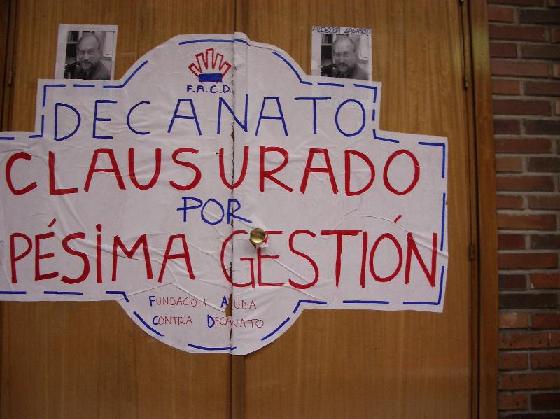 F.A.C.D.
DECANATO
CLAUSURADO
POR
PÉSIMA GESTIÓN
FUNDACIÓN AYUDA
CONTRA DECANATO